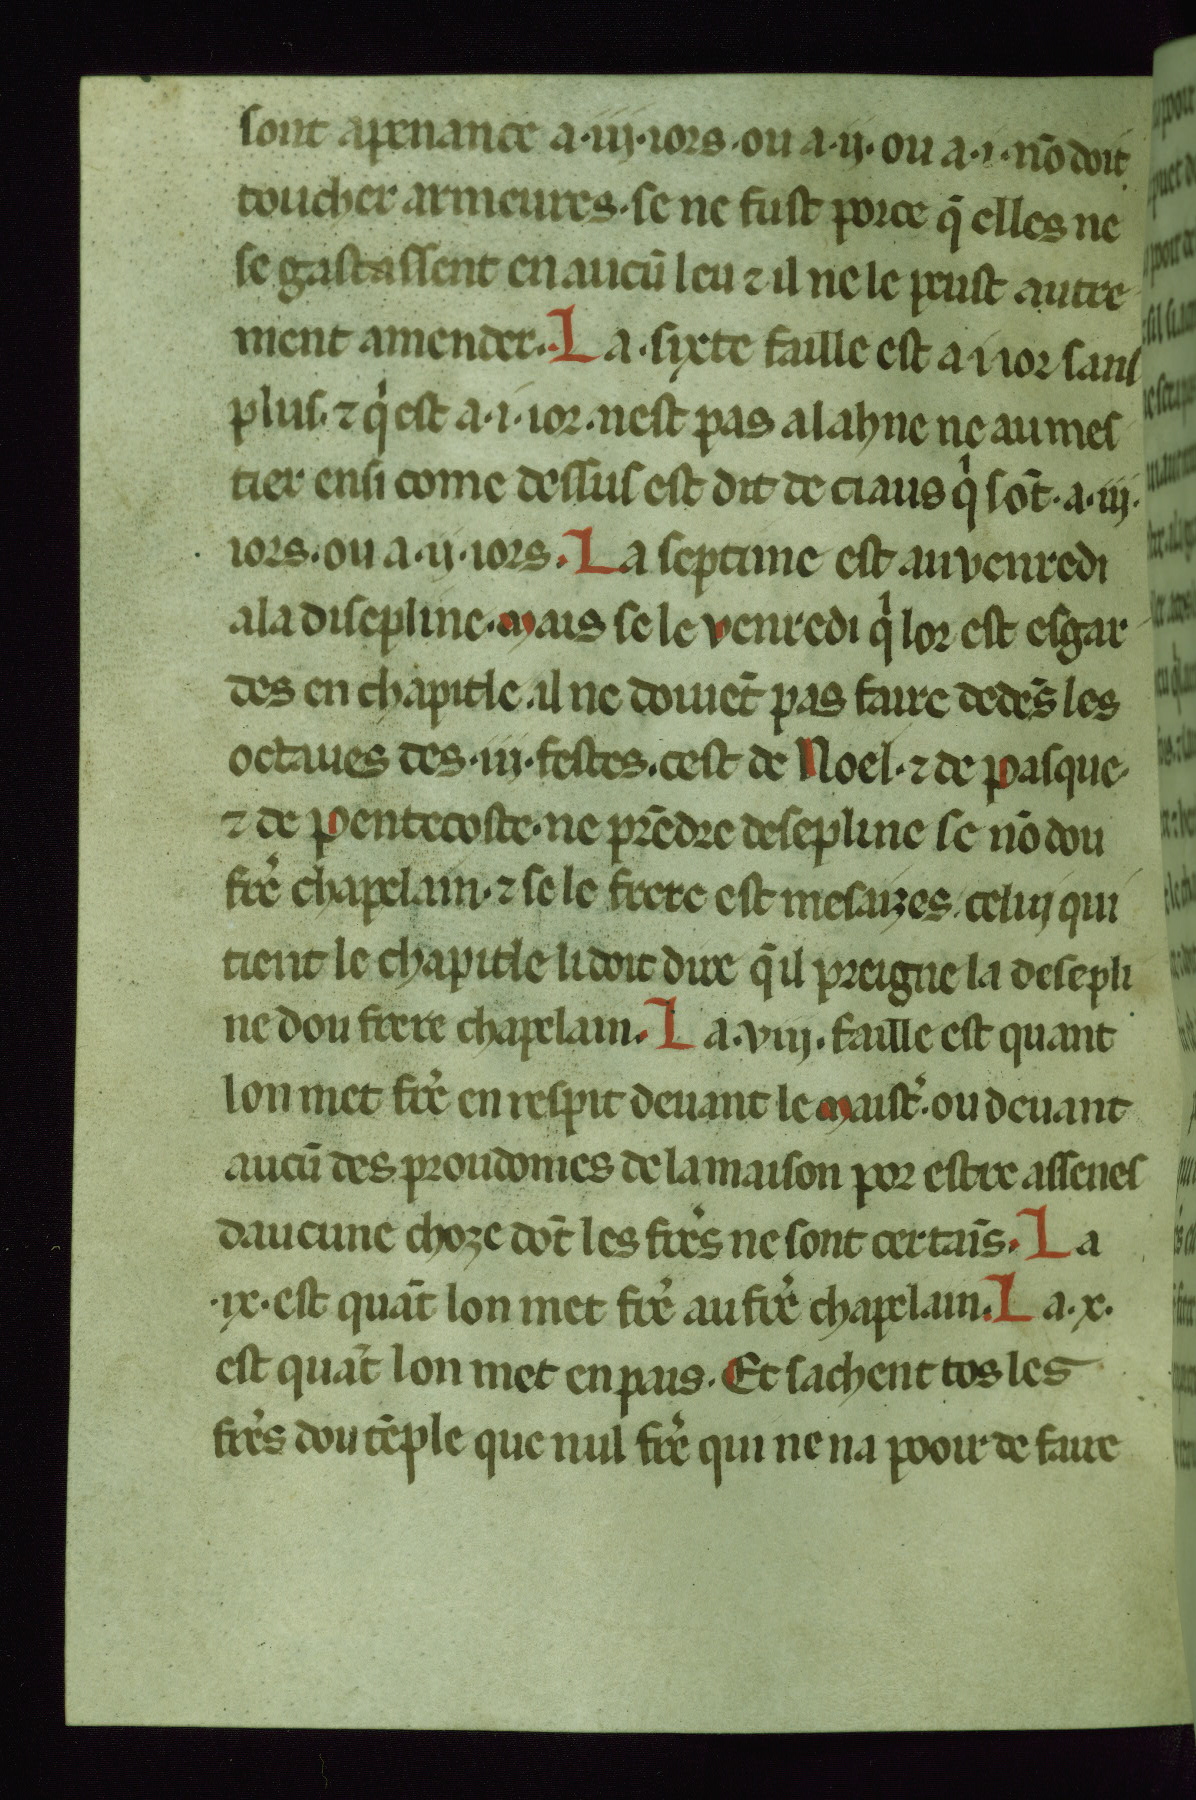 sont apenance a·iij·iors·ou a·ij· ou a·i·nō doit
toucher armeures·se ne fust porce q̄ elles ne
se gastassent en aucū leu ⁊ il ne le peust autre
ment amender. La·sixte faille est a i ior sans
plus·⁊ qͥ est a·i·ior·nest pas alahne ne au mes
tier ensi come dessus est dit de ciaus qͥ sōt·a·iij·
iors·ou a·ij·iors. La septime est au venredi
ala disepline·mais se le venredi qͥ lor est esgar
des en chapitle·il ne douiēt pas faire dedēs les
octaues des·iij·festes·cest de Noel·⁊ de pasque·
⁊ de pentecoste·ne prēdre desepline se nō dou
fr̄e chapelain·⁊ se le frere est mesaizes·celuj qui
tient le chapitle li doit dire q̄ il preigne la desepli
ne dou frere chapelain. La·viij·faille est quant
lon met fr̄e en respit deuant le maist̄·ou deuant
aucū des proudomes de la maison por estre assenes
daucune choze dōt les fr̄es ne sont certaīs. La
·ix·est quāt lon met fr̄e au fr̄e chapelain. La·x·
est quāt lon met en pais·Et sachent tos les
fr̄es dou tēple que nul fr̄e qui ne na pooir de faire